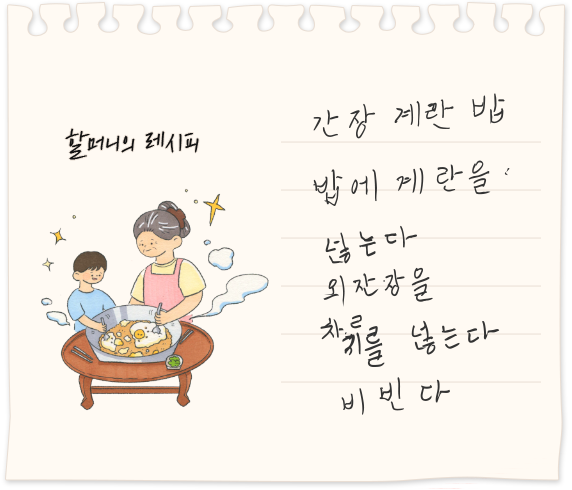 할머니의 레시피
간장 계란 밥
밥에 계란을
넣는다
외잔장을
넣는다
비빈다